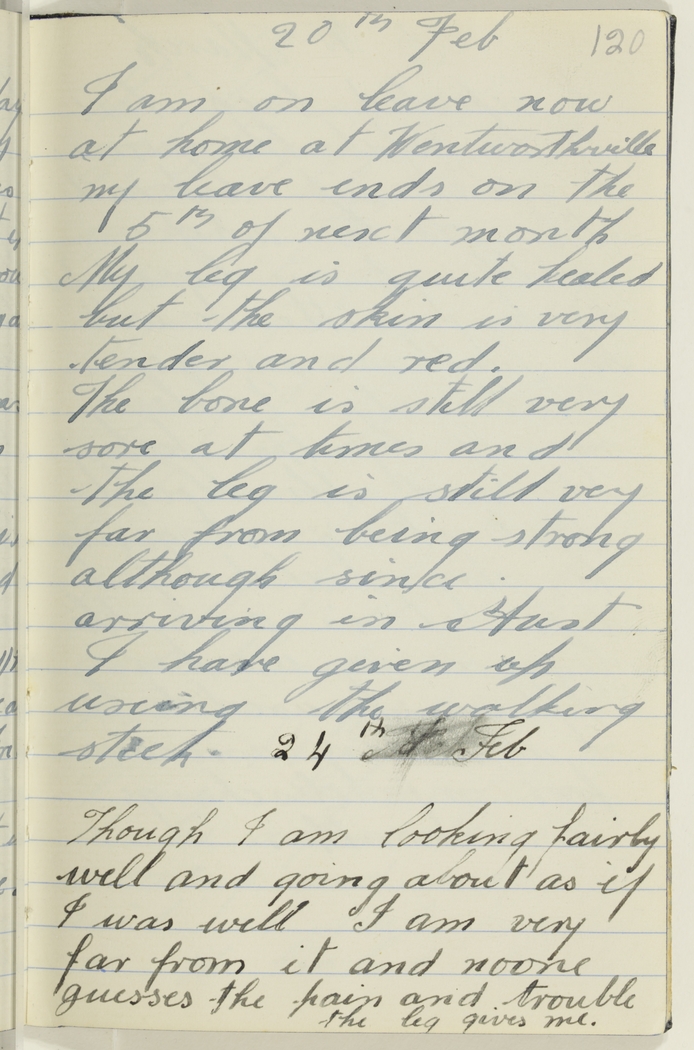 20th Feb
120
I am on leave now
at home at Wentworthville
my leave ends on the
5th of next month
My leg is quite healed
but the skin is very
tender and red.
The bone is still very
sore at times and
the leg is still very
far from being strong
although since
arriving in Aust
I have given up
useing the walking
stick. 24th Feb
Though I am looking fairly
well and going about as if
I was well I am very
far from it and noone
guesses the pain and trouble
the leg gives me.